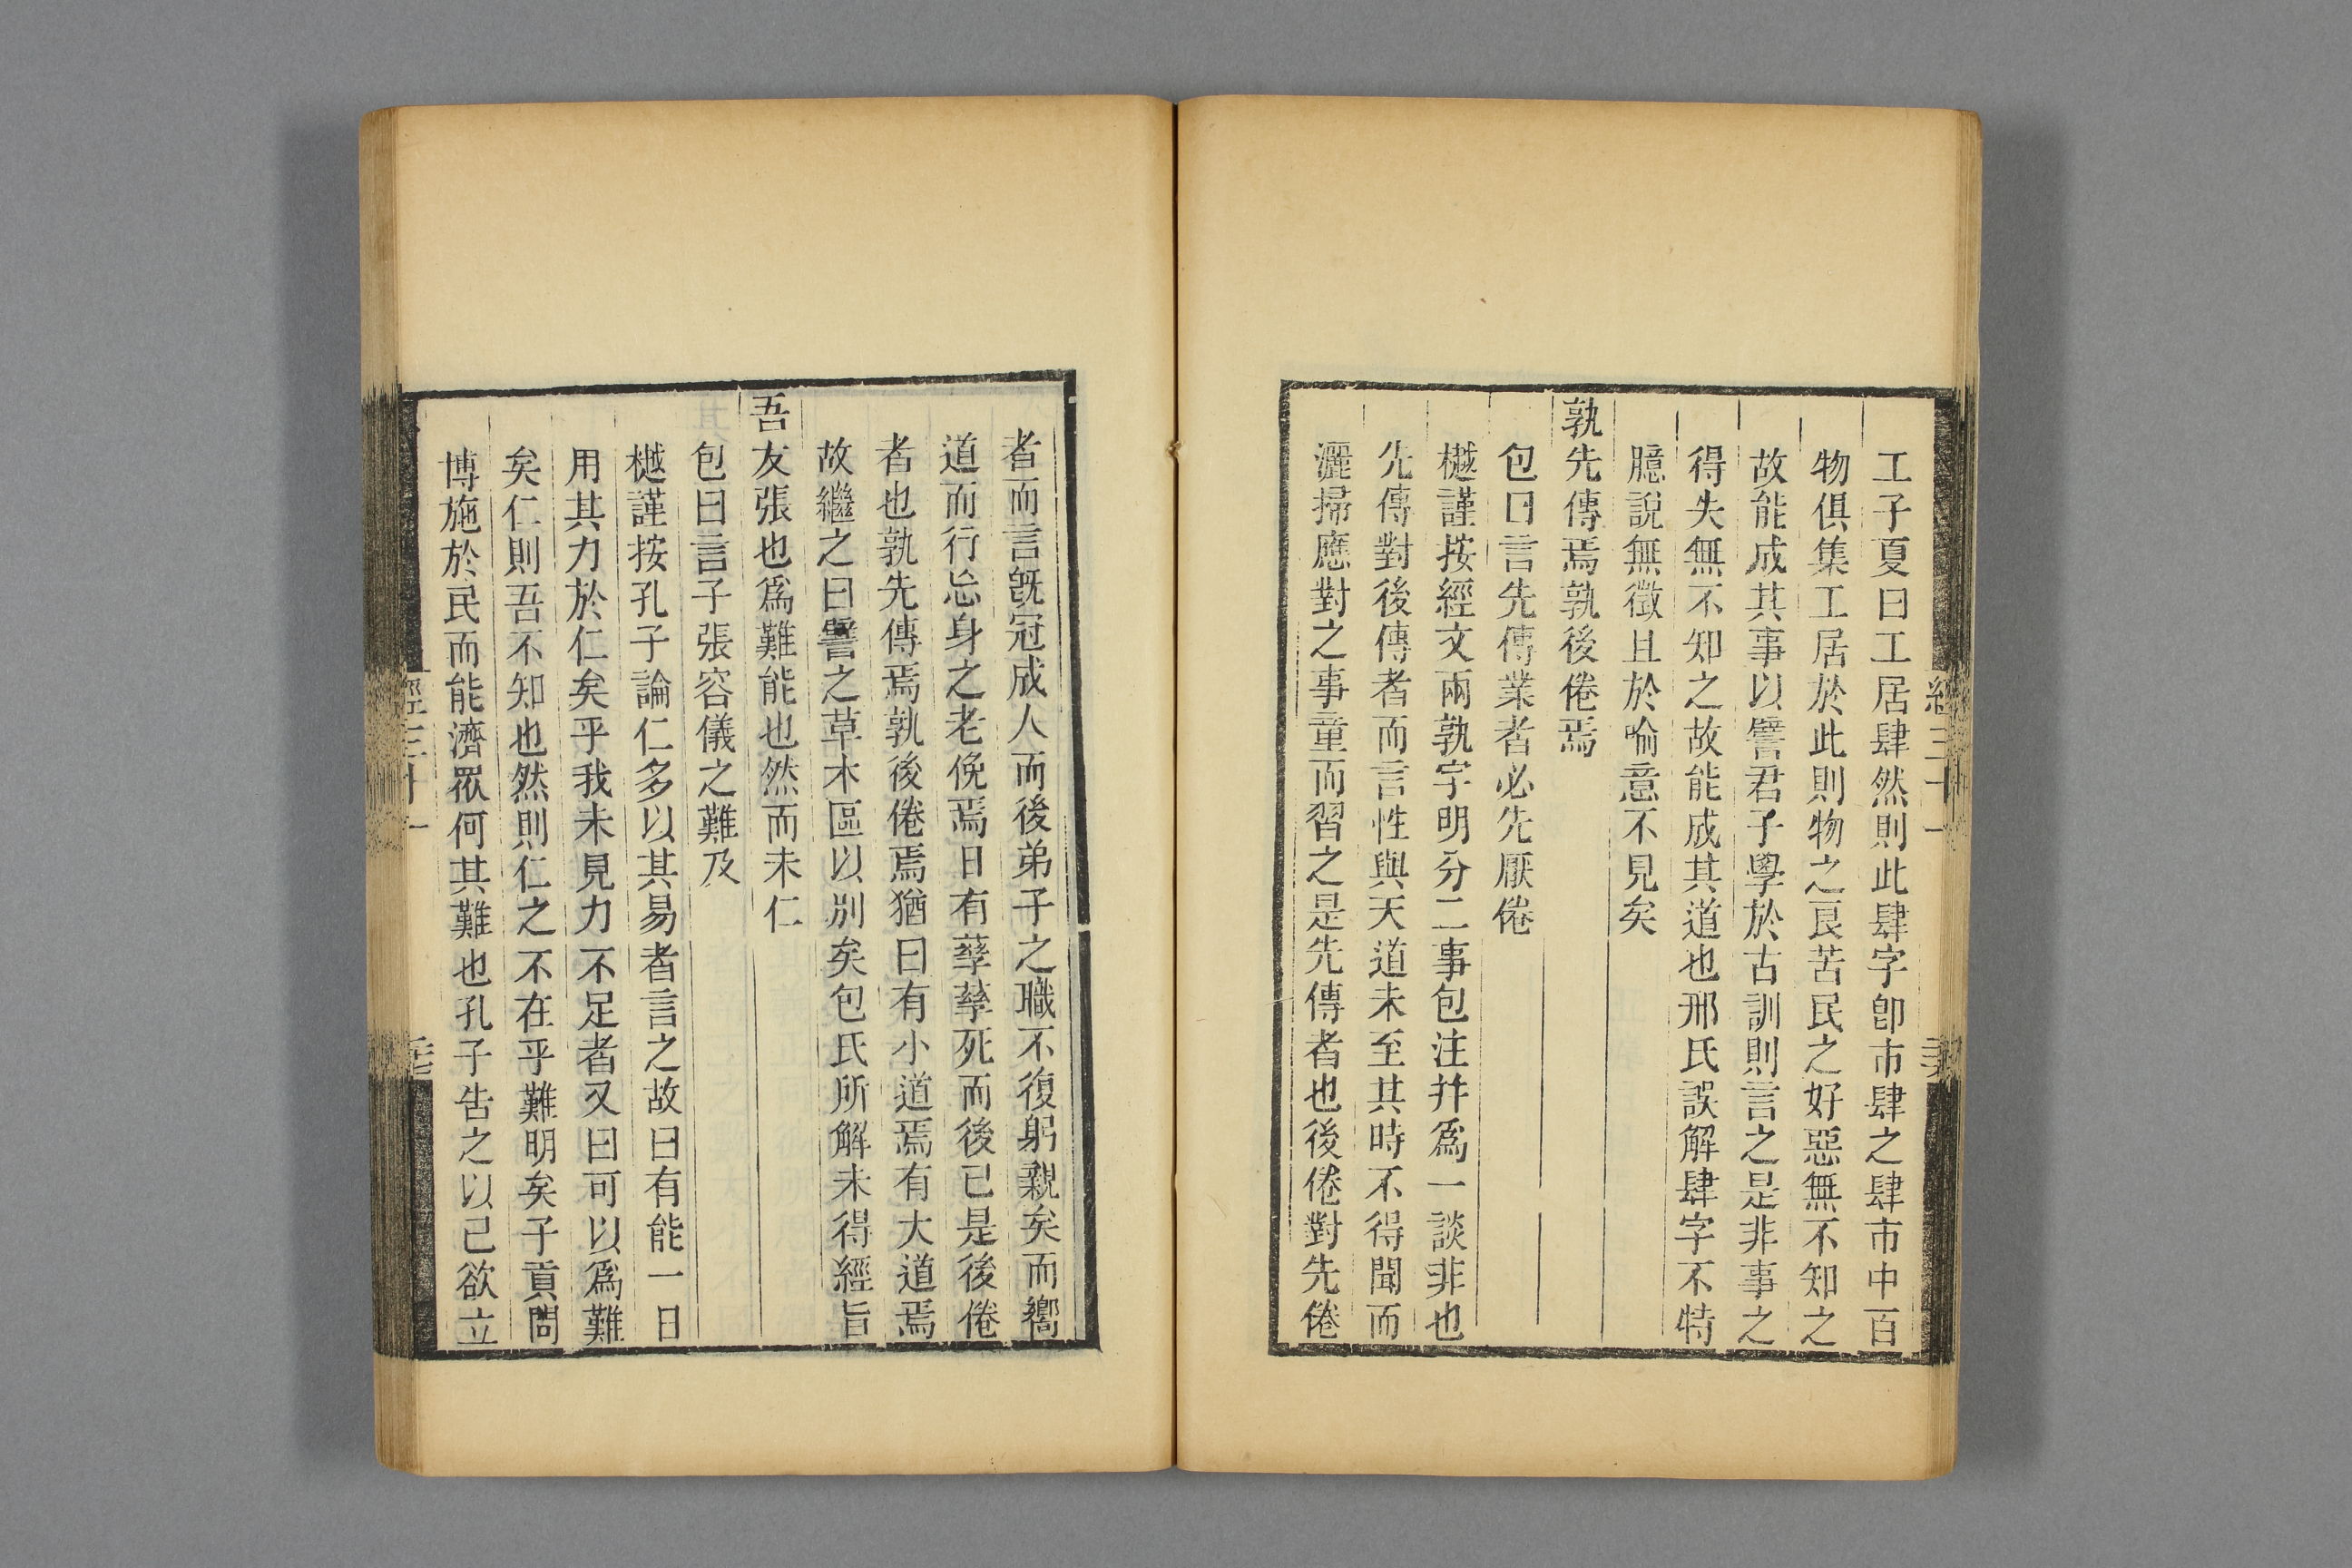 工子夏曰工居肆然則此肆字卽市肆之肆市中百
物俱集工居於此則物之良苦民之好惡無不知之
故能成其事以譬君子學於古訓則言之是非事之
得失無不知之故能成其道也邢氏誤解肆字不特
臆說無徵且於喻意不見矣
孰先傳焉孰後倦焉
包曰言先傳業者必先厭倦
樾謹按經文兩孰字明分二事包注幷爲一談非也
先傳對後傳者而言性與天道未至其時不得聞而
灑掃應對之事童而習之是先傳者也後倦對先倦
者而言旣冠成人而後弟子之職不復躬親矣而嚮
道而行忘身之老俛焉日有孳孳死而後已是後倦
者也孰先傳焉孰後倦焉猶曰有小道焉有大道焉
故繼之曰譬之草木區以別矣包氏所解未得經旨
吾友張也爲難能也然而未仁
包曰言子張容儀之難及
樾謹按孔子論仁多以其易者言之故曰有能一日
用其力於仁矣乎我未見力不足者又曰可以爲難
矣仁則吾不知也然則仁之不在乎難明矣子貢問
博施於民而能濟眾何其難也孔子告之以己欲立
經三十一